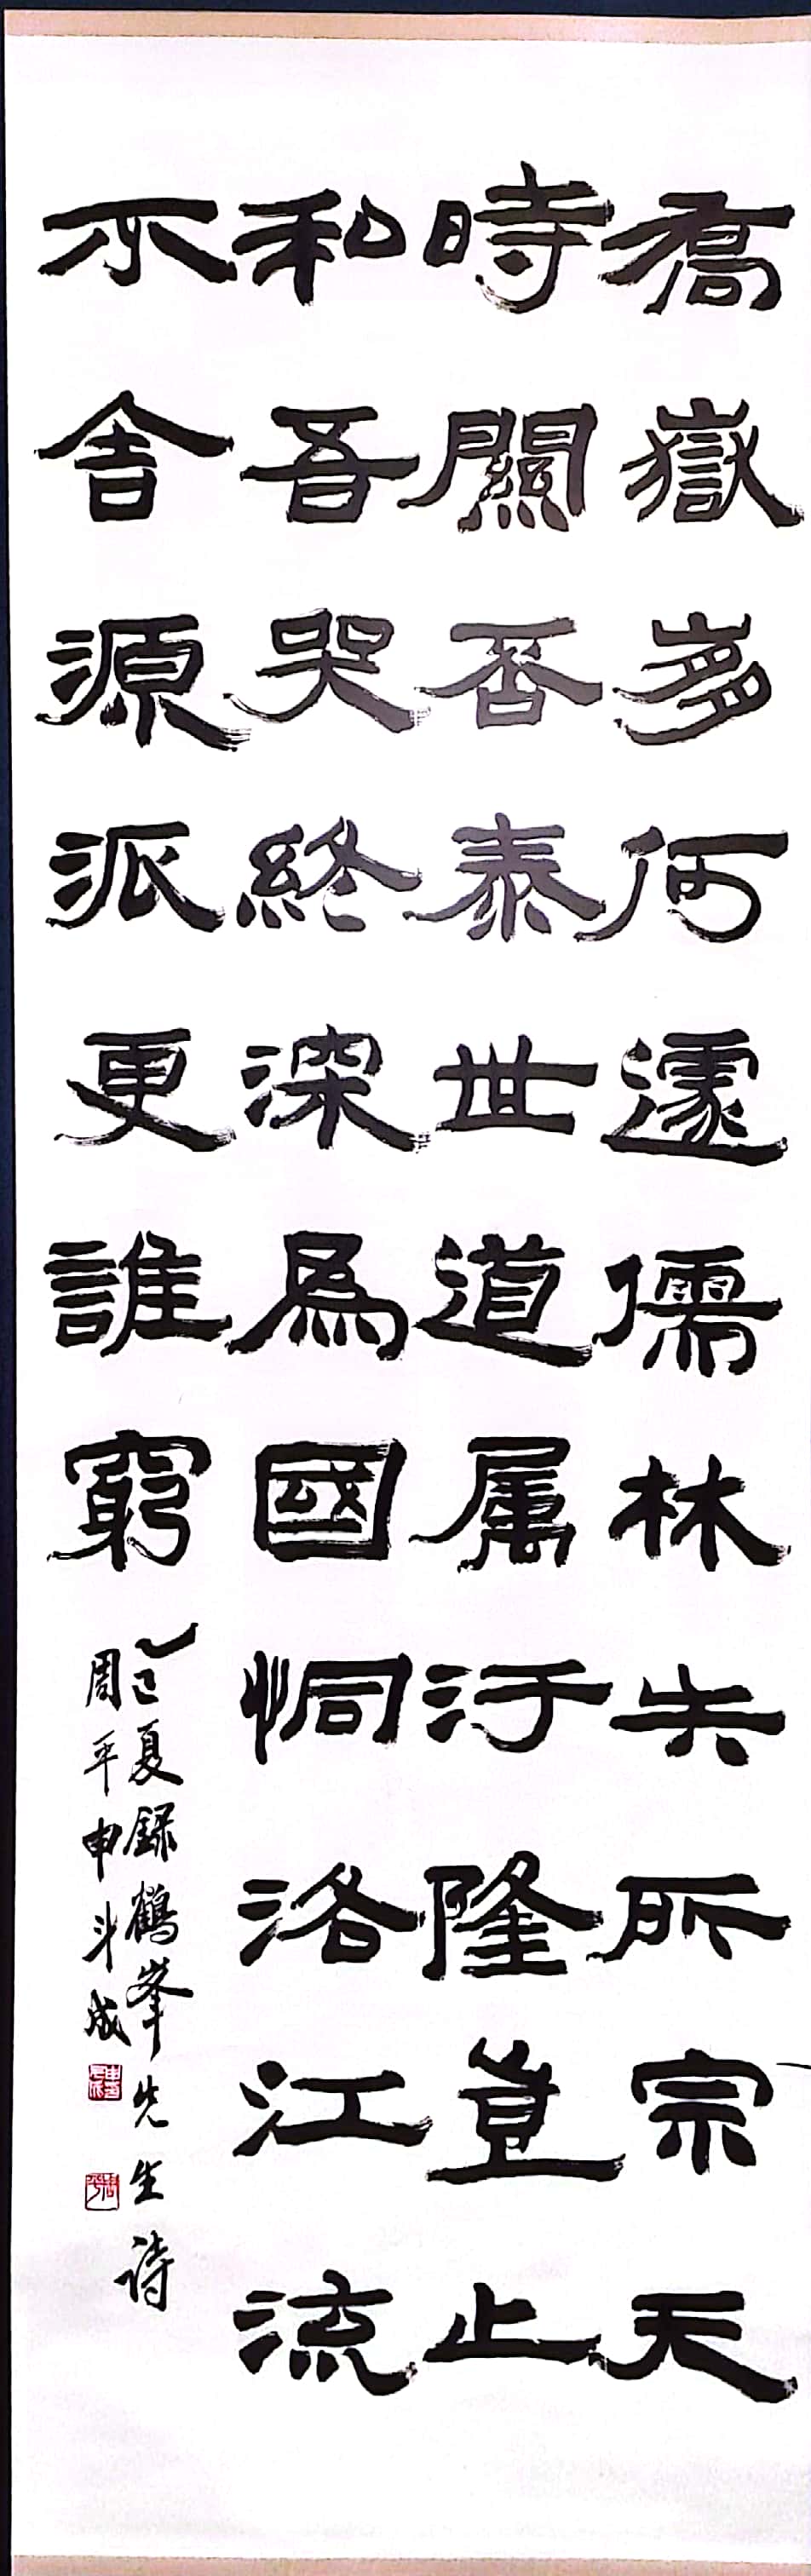 喬嶽崩何遽儒林失所宗天
時關否泰世道属汙隆豈止
私吾哭終深為國恫洛江流
不舍源派更誰窮
乙巳夏録鶴峯先生詩
周平申斗成